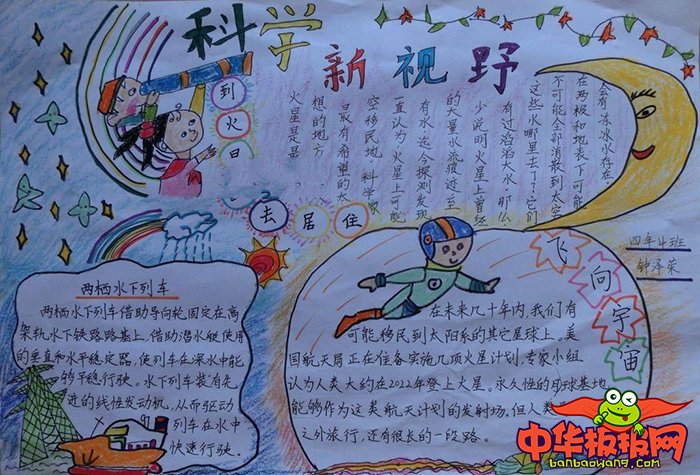 科学
新视野
到火日
去居住
火星是最
想的地方
最有希望的太
空移民地。科学家
直认为火星上可能
有水迄今探测发现
的大量水流痕迹至
少说明火星上曾经
有过滔滔大水。那么
这些水哪里去了?它们
不可能全部消散到太空
在两极和地表下可能
会有去冰水存在。
四年4班
钟泽荣
飞向宇宙
两栖水下列车
两栖水下列车借助导向轮固定在高
架轨水下铁路路基上,借助潜水艇使用
的垂直和水平稳定器,使列车在深水中能
够平稳行驶。水下列车装有先
进的线性发动机,从而驱动
列车在水中
快速行驶。
在未来几十年内,我们有
可能移民到太阳系的其它星球上,美
国航天局正在准备实施几项火星计划,专家小组
认为人类大约在2022年登上火星。永久性的月球基地
能够作为这类航天计划的发射场。但人类
之外旅行,还有很长的一段路。
中华板报网
banbaowang.com